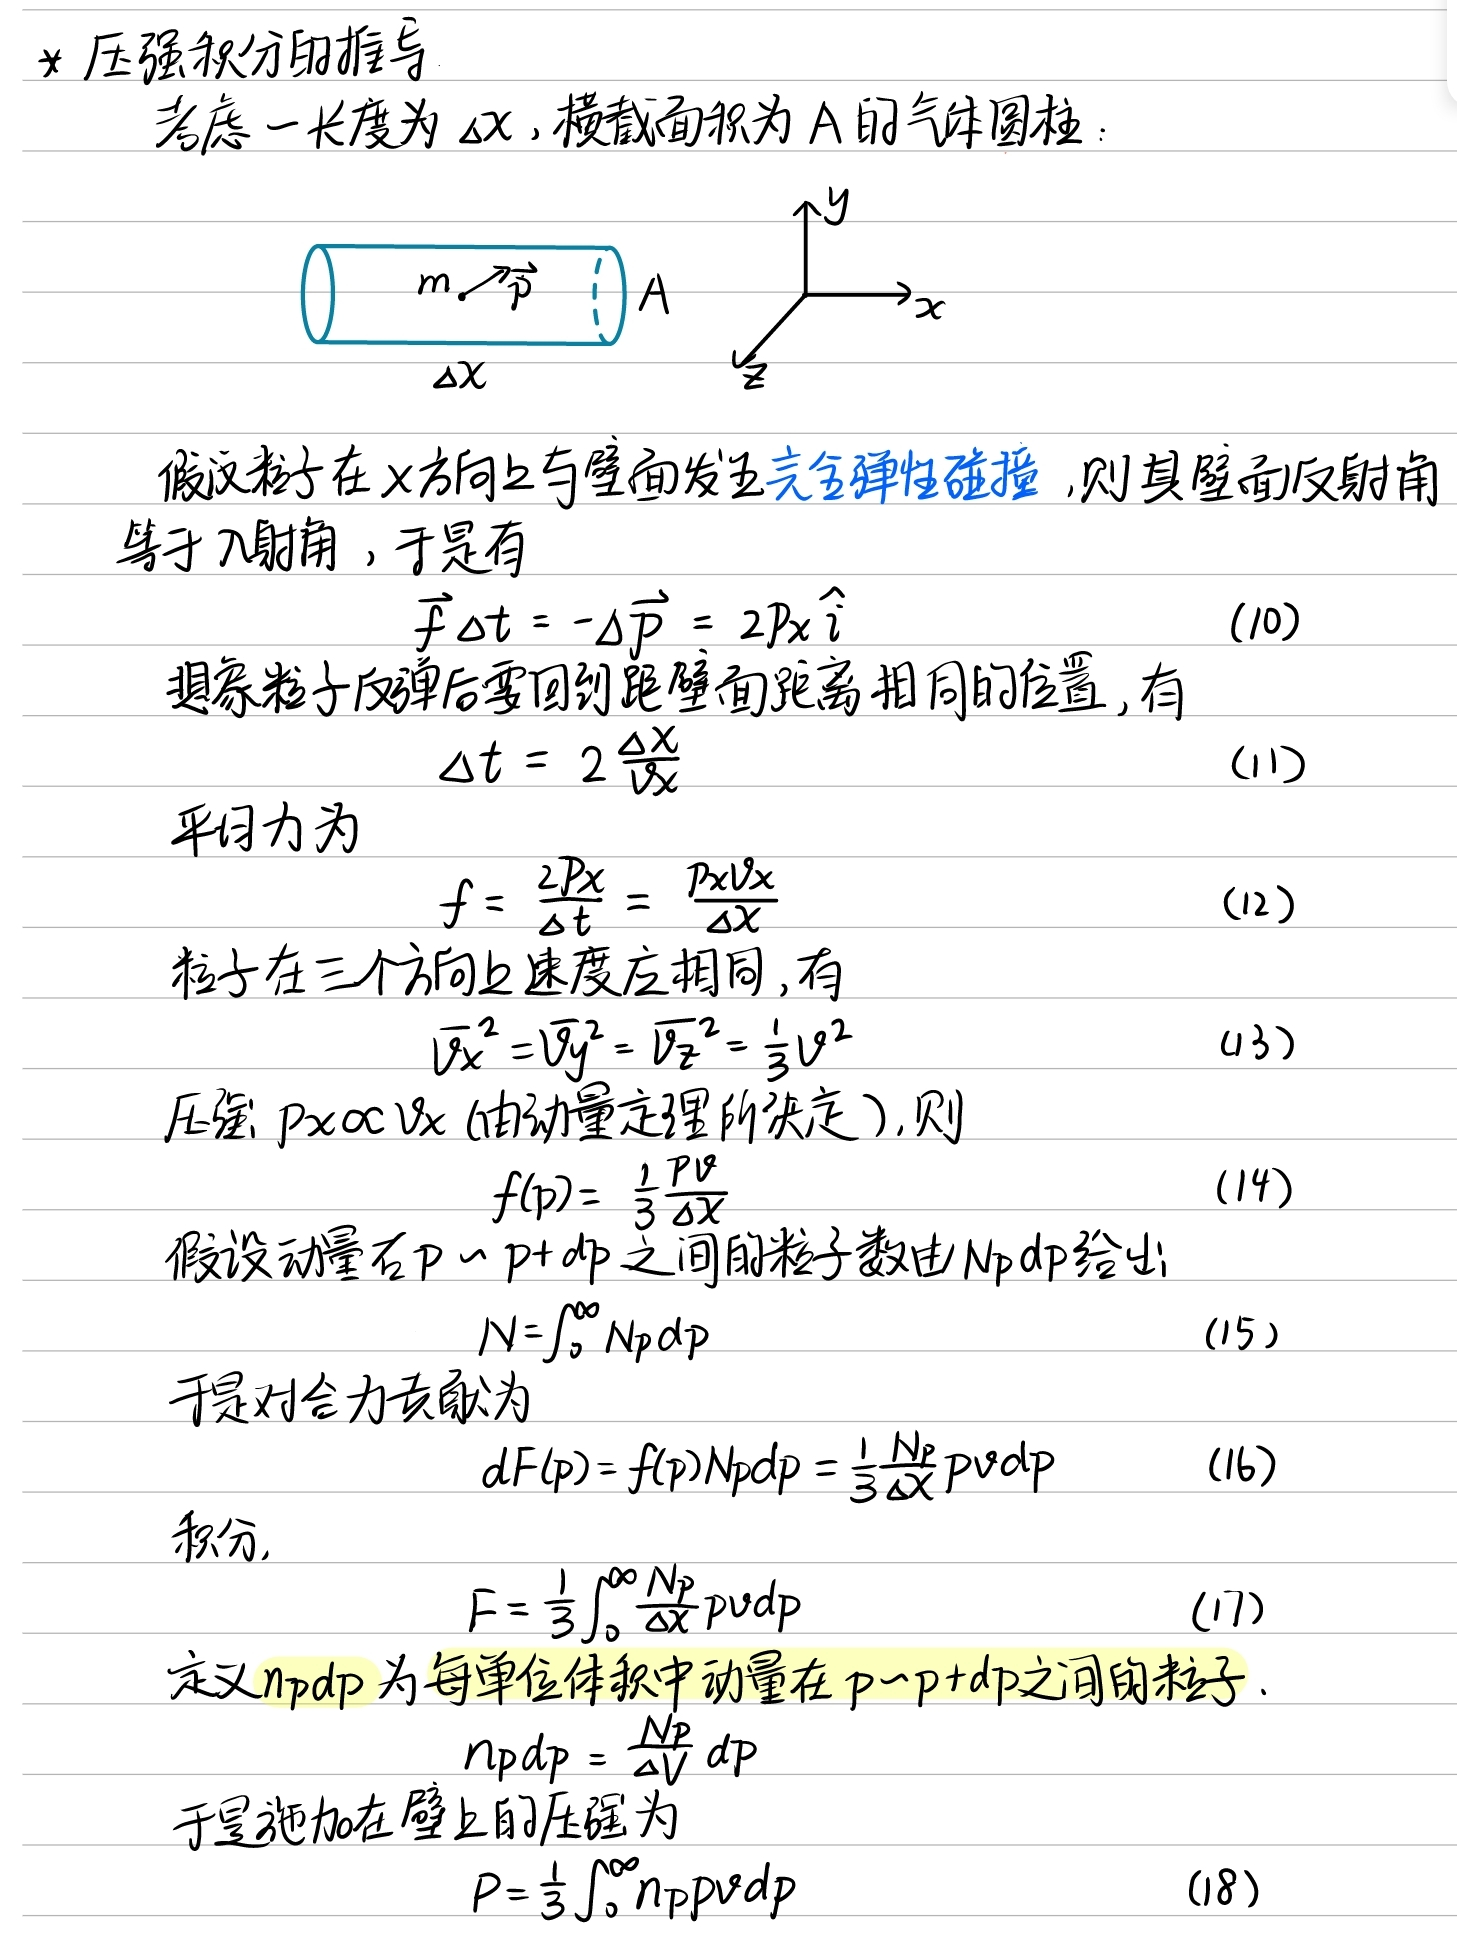 * 压强积分的推导
考虑一长度为 Δx，横截面积为 A 的气体圆柱：
y
m p⃗ A
x
Δx z
假设粒子在 x 方向上与壁面发生完全弹性碰撞，则其壁面反射角
等于入射角，于是有
f⃗Δt = -Δp⃗ = 2pₓ î (10)
想象粒子反弹后要回到距壁面距离相同的位置，有
Δt = 2 Δx/vₓ (11)
平均力为
f = 2pₓ/Δt = pₓvₓ/Δx (12)
粒子在三个方向上速度应相同，有
v̄ₓ² = v̄y² = v̄z² = 1/3 v² (13)
压强 pₓ∝vₓ (由动量定理所决定)，则
f(p) = 1/3 pv/Δx (14)
假设动量在 p ~ p+dp 之间的粒子数由 Npdp 给出
N = ∫₀^∞ Npdp (15)
于是对合力贡献为
dF(p) = f(p)Npdp = 1/3 Np/Δx pvdp (16)
积分，
F = 1/3 ∫₀^∞ Np/Δx pvdp (17)
定义 npdp 为每单位体积中动量在 p~p+dp 之间的粒子．
npdp = Np/ΔV dp
于是施加在壁上的压强为
P = 1/3 ∫₀^∞ np pvdp (18)